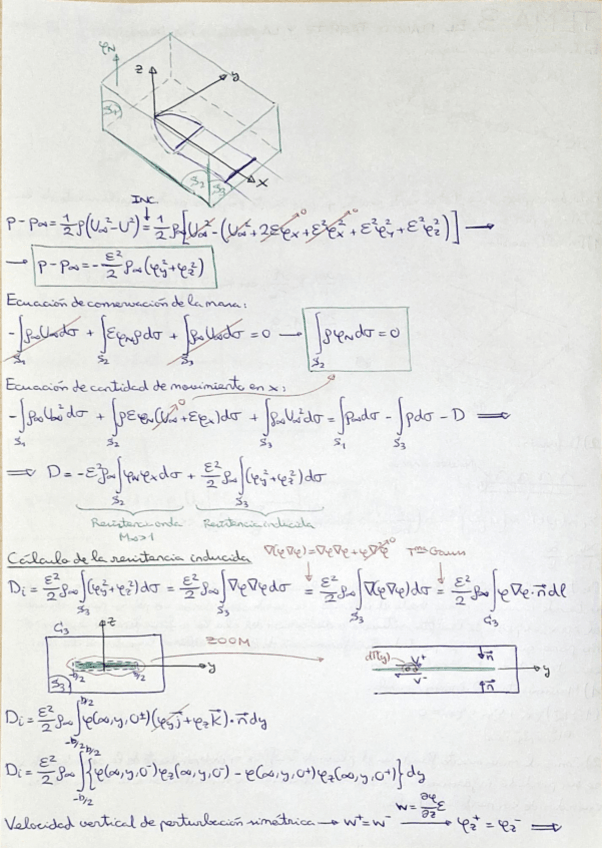 φN
z
y
S1
S2
S3
x
INC.
p - p∞ = 1/2 ρ(U∞² - U²) = 1/2 ρ∞[U∞² - (U∞² + 2εφx + ε²φx² + ε²φy² + ε²φz²)] →
0
0
→ p - p∞ = -ε²/2 ρ∞(φy² + φz²)
Ecuación de conservación de la masa:
-∫S1 ρ∞U∞dσ + ∫S2 εφNρdσ + ∫S3 ρ∞U∞dσ = 0 → ∫S2 ρφN dσ = 0
Ecuación de cantidad de movimiento en x:
0
-∫S1 ρ∞U∞²dσ + ∫S2 ρεφN(U∞ + εφx)dσ + ∫S3 ρ∞U∞²dσ = ∫S1 p∞dσ - ∫S3 pdσ - D ⇒
⇒ D = -ε²ρ∞∫S2 φNφx dσ + ε²/2 ρ∞∫S3 (φy² + φz²)dσ
Resistencia onda
M∞>1
Resistencia inducida
Cálculo de la resistencia inducida
∇(φ∇φ) = ∇φ∇φ + φ∇²φ
0
Tma Gauss
Di = ε²/2 ρ∞∫S3 (φy² + φz²)dσ = ε²/2 ρ∞∫S3 ∇φ∇φdσ = ε²/2 ρ∞∫S3 ∇(φ∇φ)dσ = ε²/2 ρ∞∫C3 φ∇φ·n⃗ dl
C3
z
y
-b/2
b/2
S3
ZOOM
dΓ(y)
V+
V-
n⃗
n⃗
y
Di = ε²/2 ρ∞∫-b/2 b/2 φ(∞,y,0±)(φy j⃗ + φz k⃗)·n⃗ dy
Di = ε²/2 ρ∞∫-b/2 b/2 {φ(∞,y,0-)φz(∞,y,0-) - φ(∞,y,0+)φz(∞,y,0+)}dy
Velocidad vertical de perturbación simétrica → w+ = w- → w = ∂φ/∂z ε φz+ = φz- ⇒